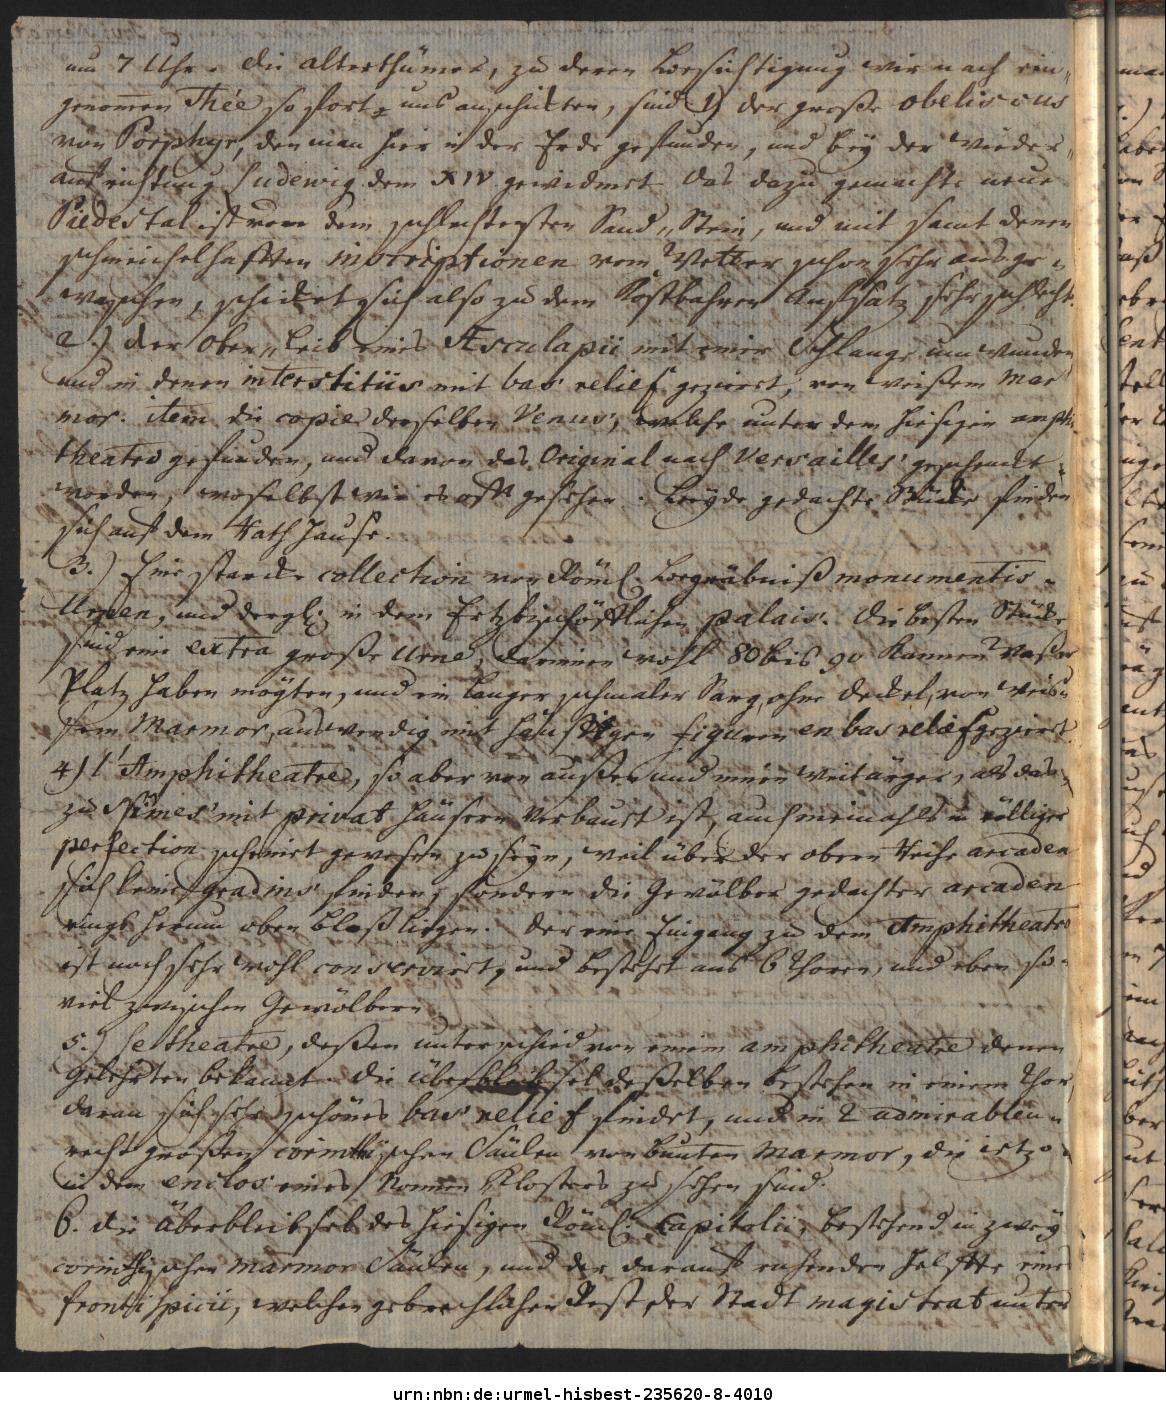 um 7 Uhr. die alterthümer, zu deren Besichtigung wir nach ein„
genom̅en Thée so fort uns anschickten, sind 1) der große obeliscus
von Porphyr, den man hier in der Erde gefunden, und beÿ der wieder„
aufrichtung Ludewig dem XIV gewidmet. Das dazu gemachte neue
Piedestal ist von dem schlechtesten Sand„Stein, und mit samt denen
schmeichelhafften inscriptionen vom Wetter schon sehr ausge„
waschen, schicket sich also zu dem Kostbahren Auffsatz sehr schlecht.
2.) der Ober„Leib eines Æsculapii mit einer Schlange umwunden
und in denen interstitiis mit bas relief geziert, von weißem Mar
mor. item die copie derselben Venus, welche unter dem hiesigen amphi
theatro gefunden, und davon das Original nach Versailles geschenckt
worden, woselbst wir es offt gesehen. Beÿde gedachte Stücke finden
sich auf dem Rath Hause.
3.) Eine starcke collection von Röml. Begräbniß monumentis
Urnen, und dergl. in dem Ertzbischöfflichen palais. Die besten Stücke
sind eine extra große Urne, darinnen wohl 80 bis 90 Kannen Waßer
Platz haben mögten, und ein langer schmaler Sarg, ohne Deckel, von weis„
sem Marmor, auswendig mit häuffigen figuren en bas relief geziert.
4) l'Amphitheatre, so aber von außen und innen weit ärger, als das
zu Nîmes mit privat Häusern verbauet ist, auch niemahls in völliger
perfection scheinet gewesen zu seÿn, weil über der obern Reihe arcaden
sich keine gradins finden, sondern die Gewölber gedachter arcaden
rings herum oben bloß liegen. Der eine Eingang zu dem Amphitheatro
ist noch sehr wohl conserviert, und bestehet aus 6 Thoren, und eben so
viel zwischen Gewölbern
5.) le theatre, deßen unterschied von einem amphitheatre denen
Gelehrten bekannt. Die überbleibsel deßelben bestehen in einem Thor
daran sich sehr schönes bas relief findet, und in 2 admirablen
recht großen corinthischen Säulen von bunten Marmor, die ietzo
in dem enclos eines Nonnen Klosters zu sehen sind.
6. die Überbleibsel des hiesigen Röml. Capitolii, bestehend in zweÿ
corinthischen marmor Säulen, und der darauf ruhenden Helffte eines
frontispicii, welchen gebrechlichen Rest der Stadt magistrat unter
urn:nbn:de:urmel-hisbest-235620-8-4010